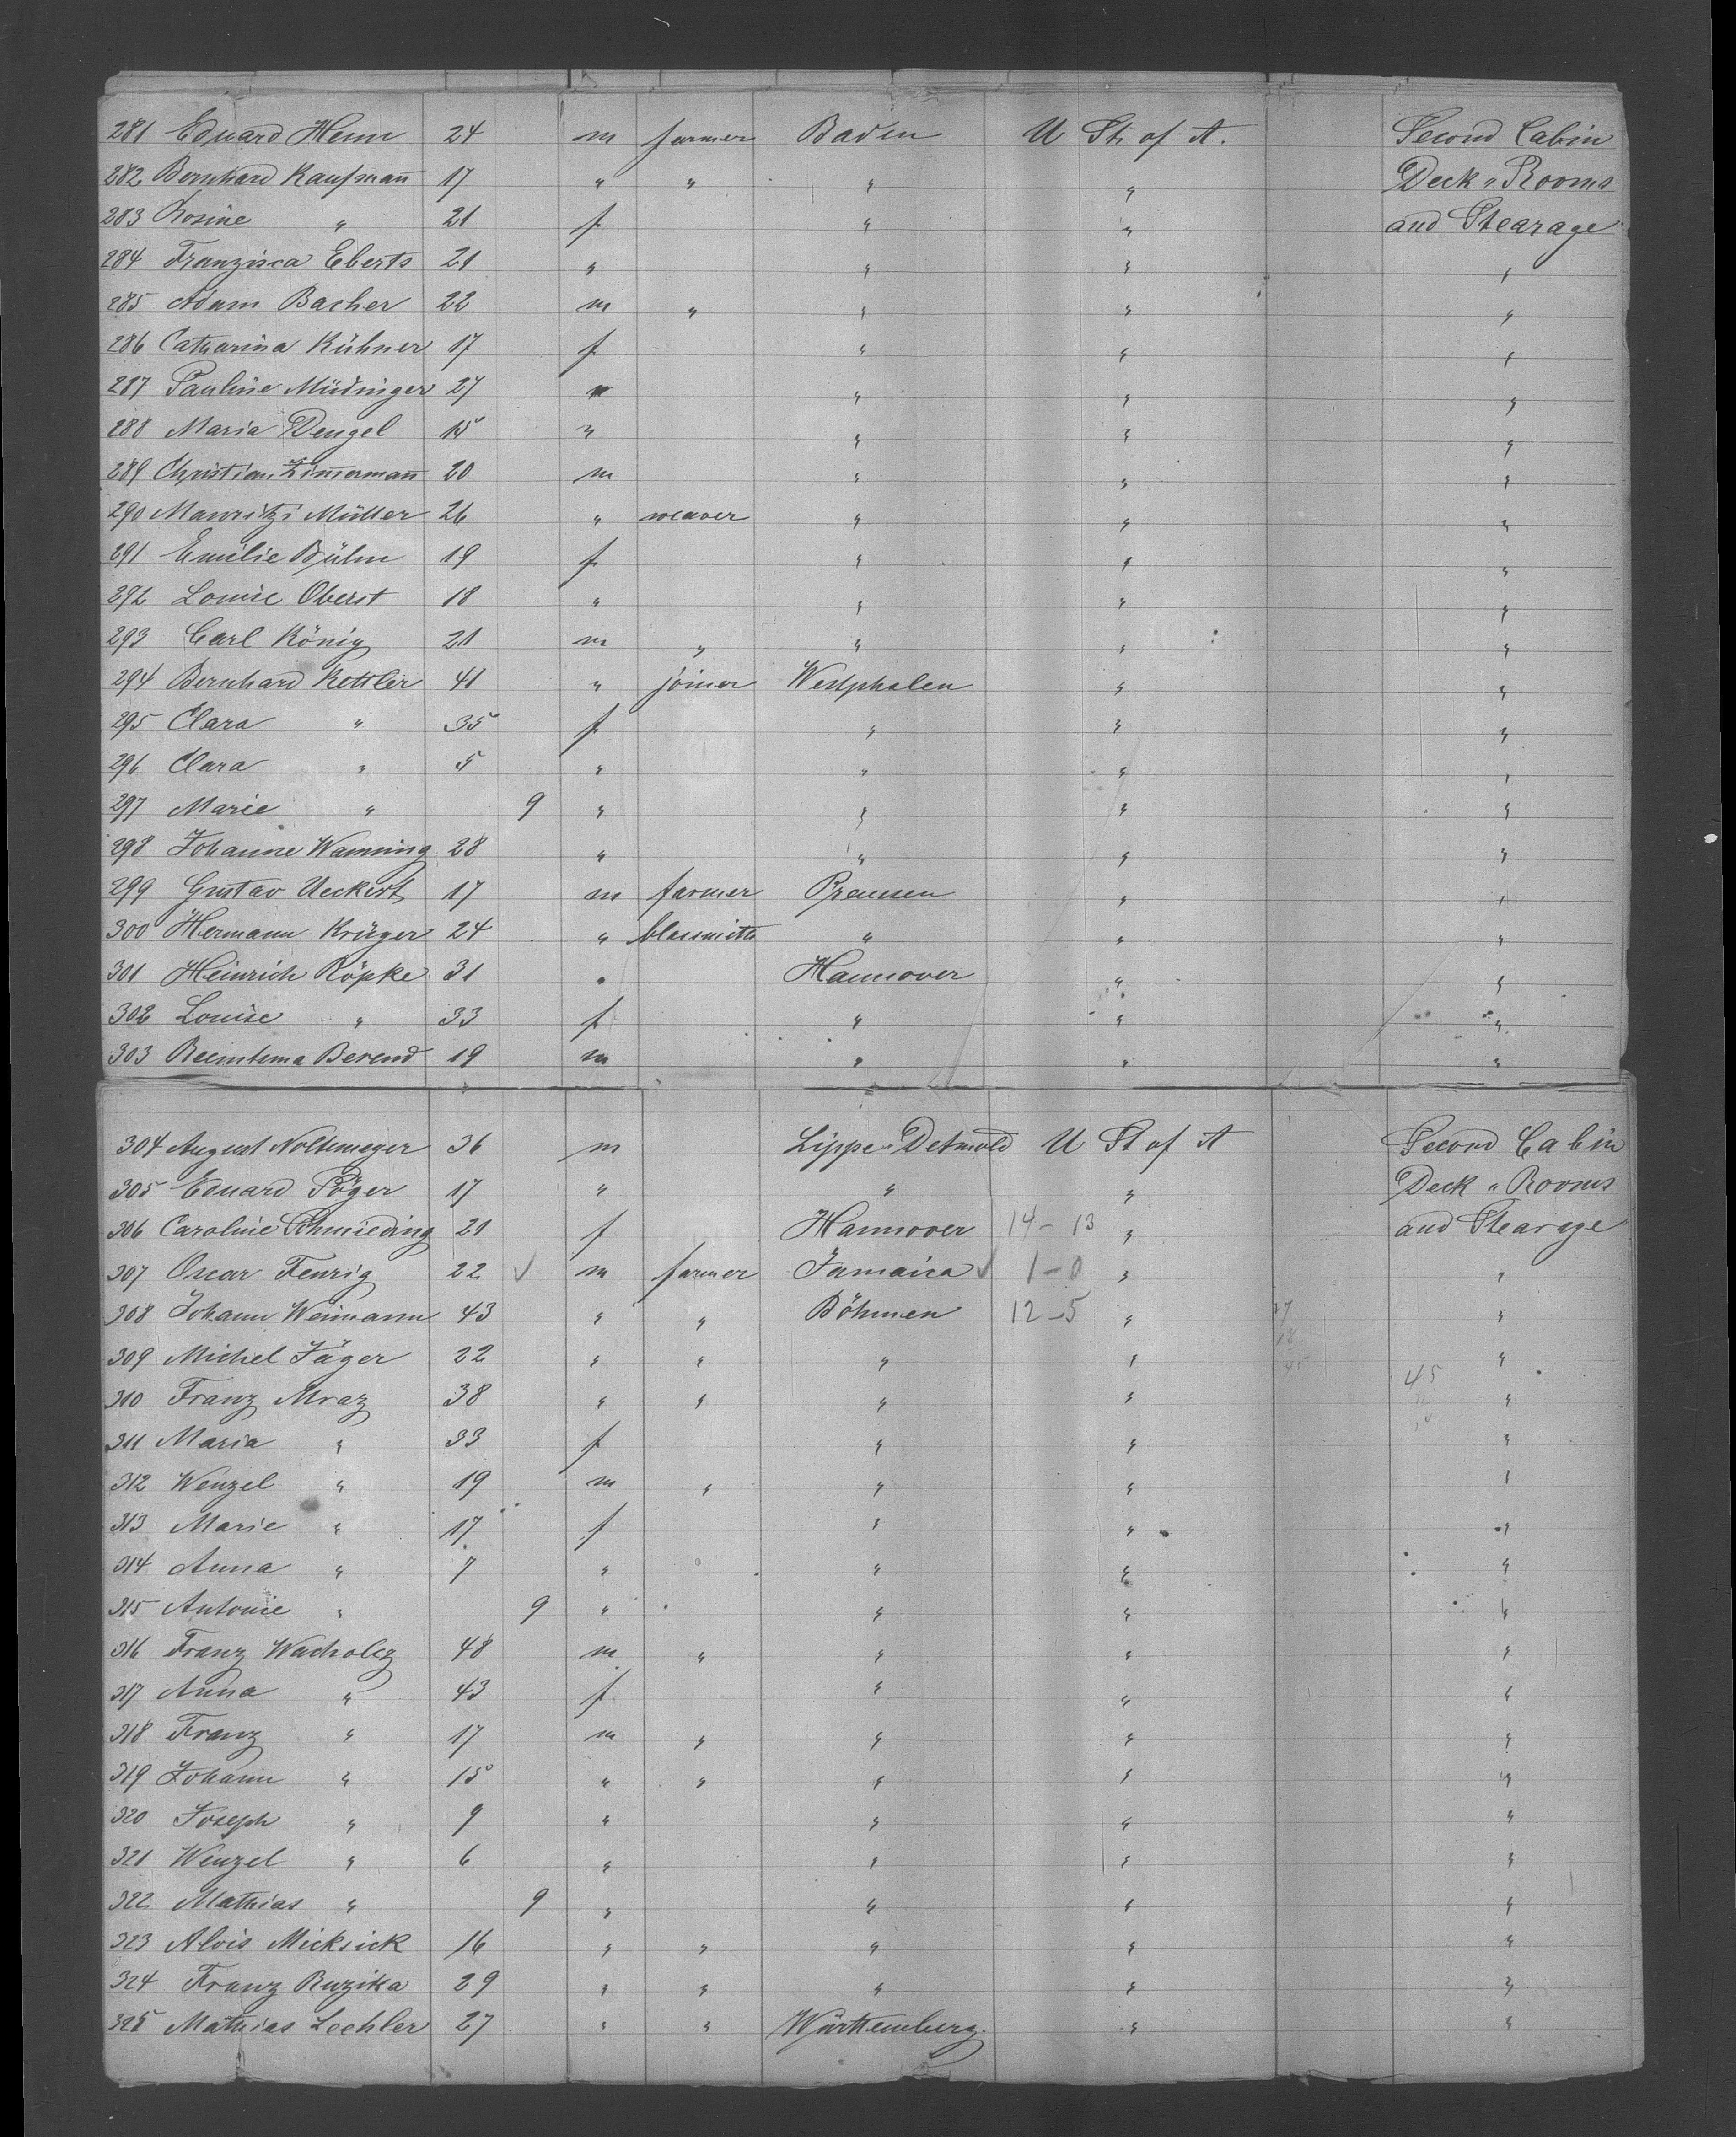 281 Eduard Henn 24 m farmer Baden U St. of A. Second Cabin
282 Bernhard Kaufmann 17 " " " " Deck " Rooms
283 Rosine " 21 f " " and Stearage
284 Franzisca Eberts 21 " " " "
285 Adam Bacher 22 m " " " "
286 Catharina Kühner 17 f " " "
287 Pauline Müdinger 27 " " " "
288 Maria Dengel 15 " " " "
289 Christian Zimermann 20 m " " "
290 Mauritz Müller 26 " weaver " " "
291 Emilie Bühn 19 f " " "
292 Louise Oberst 18 " " " "
293 Carl König 21 m " " " "
294 Bernhard Kettler 41 " joiner Westphalen " "
295 Clara " 35 f " " "
296 Clara " 5 " " " "
297 Marie " 9 " " " "
298 Johanne Wanning 28 " " " "
299 Gustav Ueckert 17 m farmer Preussen " "
300 Hermann Krüger 24 " blacsmith " " "
301 Heinrich Röpke 31 " Hannover " "
302 Louise " 33 f " " "
303 Reemtsma Berend 19 m " " "
304 August Noltemeyer 36 m Lippe Detmold U St of A Second Cabin
305 Eduard Pöger 17 " " " Deck " Rooms
306 Caroline Schmieding 21 f Hannover 14-13 " and Stearage
307 Oscar Fenrig 22 ✓ m farmer Jamaica ✓ 1-0 " "
308 Johann Weimann 43 " " Böhmen 12-5 " "
309 Michel Jäger 22 " " " " "
45
310 Franz Mraz 38 " " " " "
311 Maria " 33 f " " "
312 Wenzel " 19 m " " " "
313 Marie " 17 f " " "
314 Anna " 7 " " " "
315 Antonie " 9 " " " "
316 Franz Wacholcz 48 m " " " "
317 Anna " 43 f " " "
318 Franz " 17 m " " " "
319 Johann " 15 " " " " "
320 Joseph " 9 " " " "
321 Wenzel " 6 " " " "
322 Mathias " 9 " " " "
323 Alois Micksick 16 " " " " "
324 Franz Ruzika 29 " " " " "
325 Mathias Lechler 27 " " Württemberg. " "